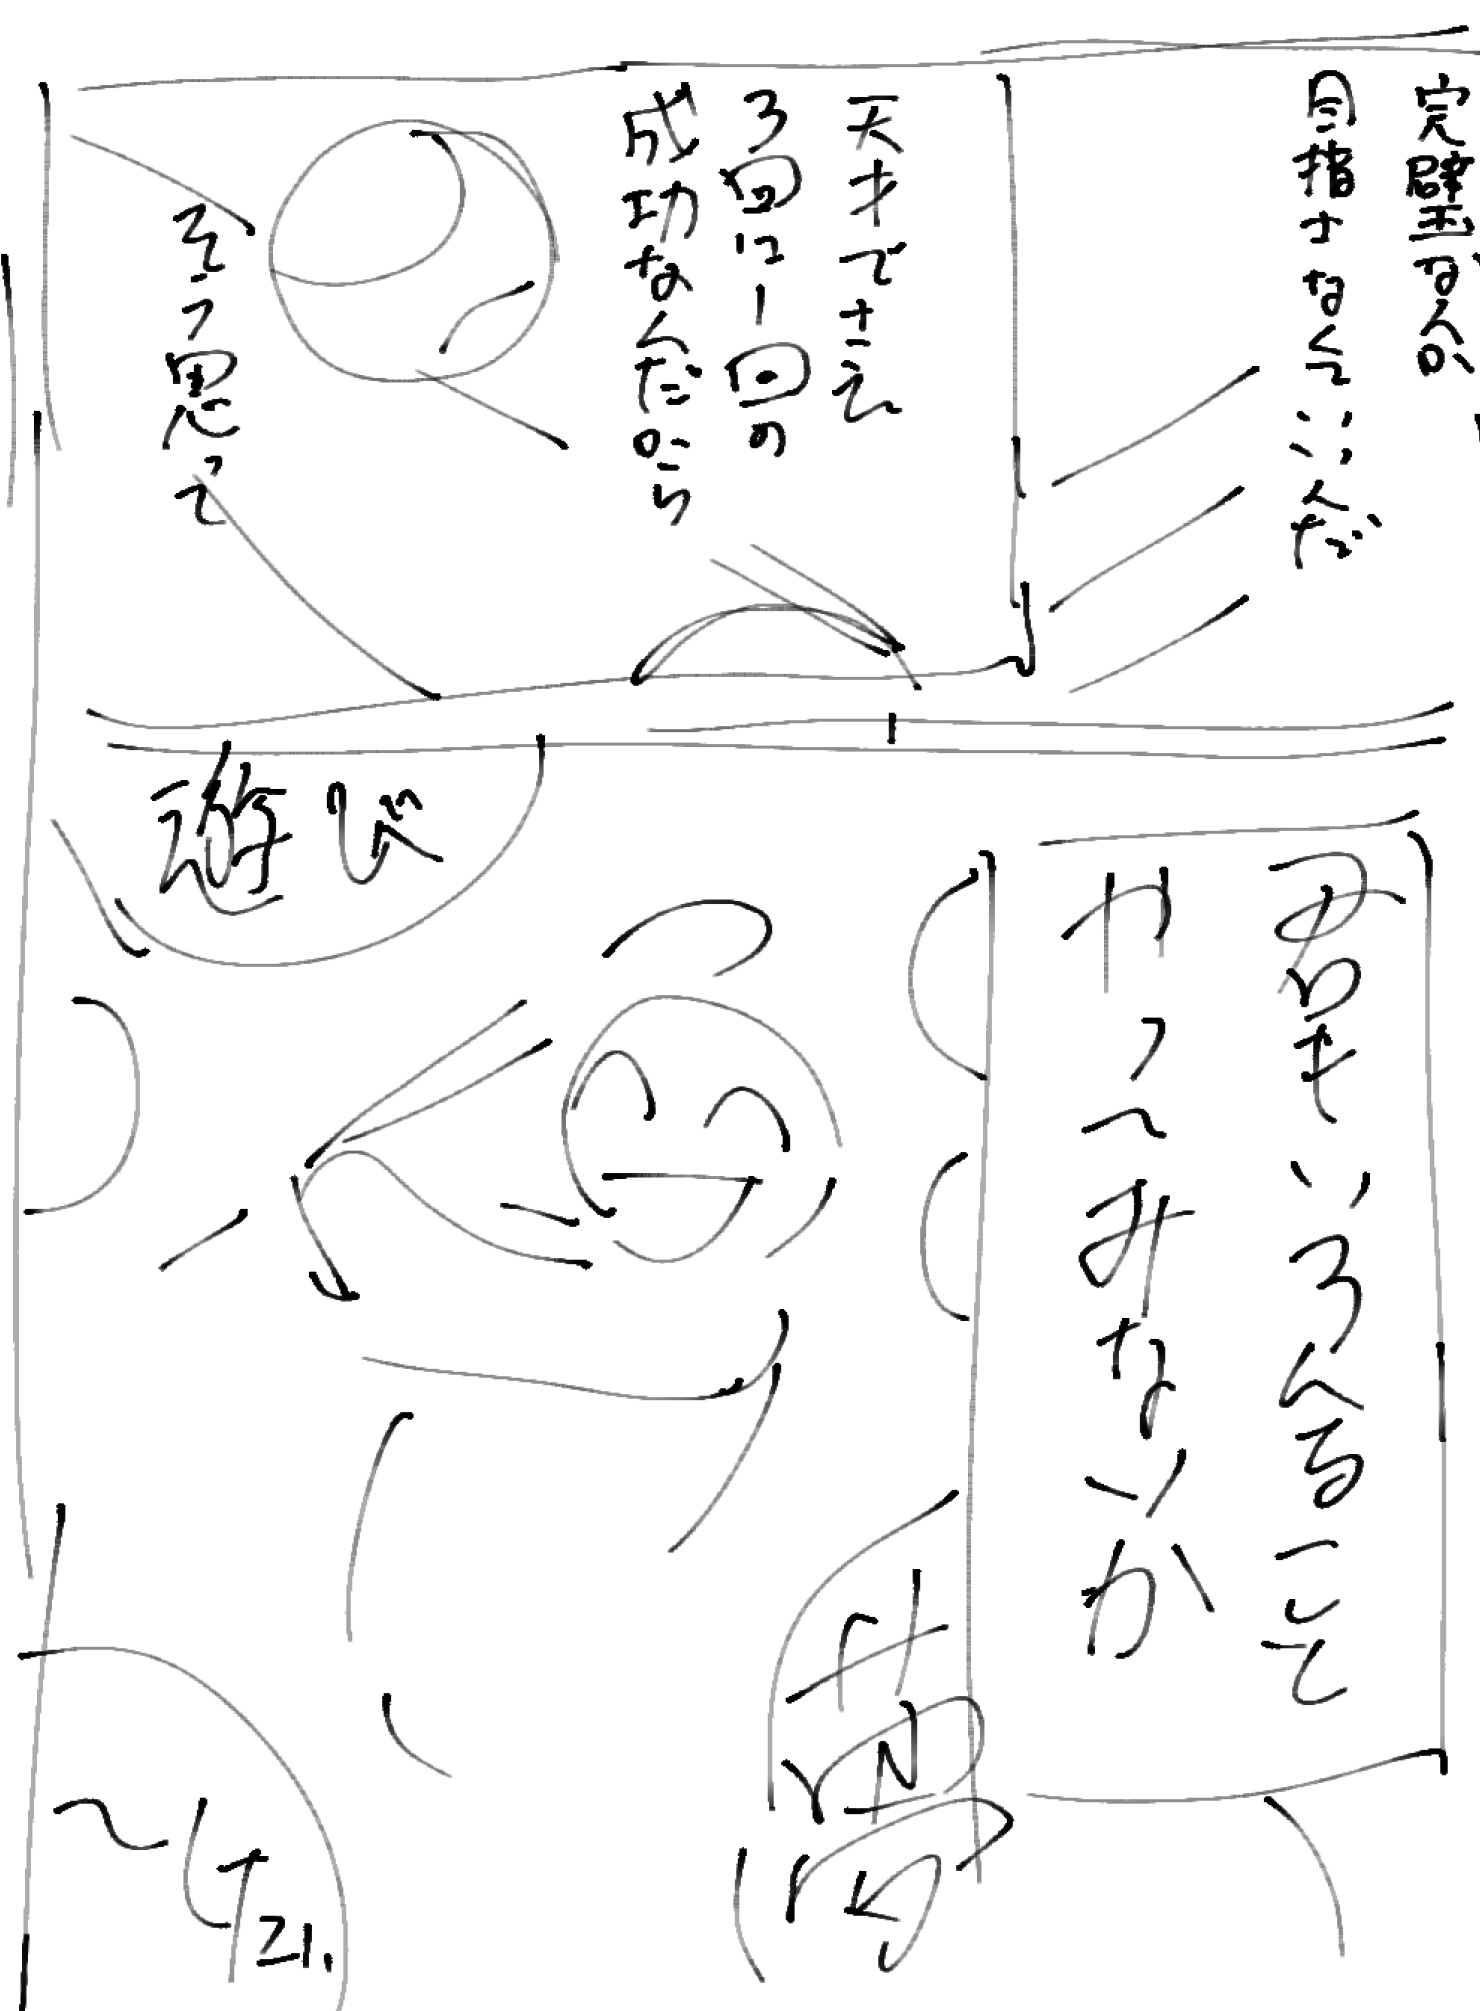 完璧なんか
目指さなくていいんだ
天才でさえ
3回に1回の
成功なんだから
そう思って
みんないろんなこと
やってみないか
遊び